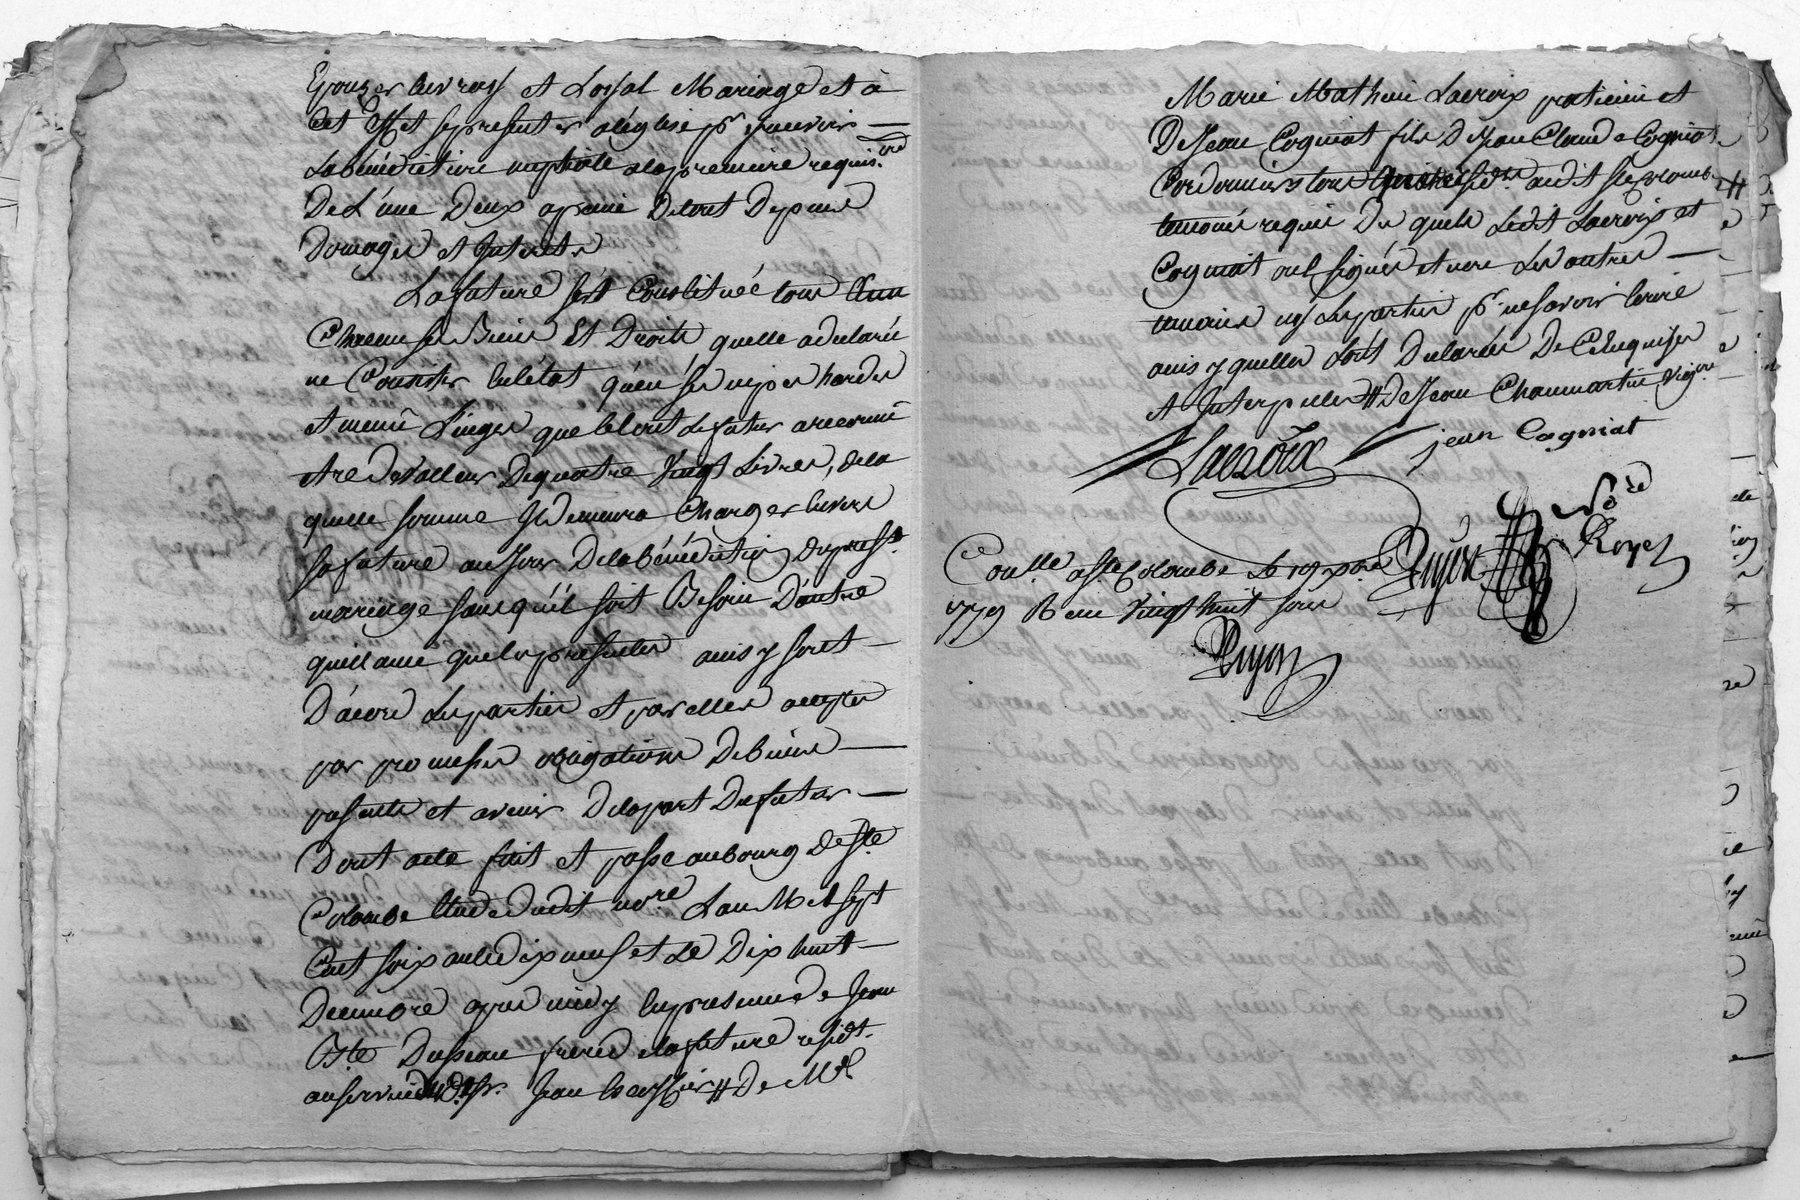 Epouser en vray et Loyal Mariage et à
Cet Effet se presenter a léglise pr y recevoir
La bénédiction nuptiale a la premiere requis.on
De L'une Deux a peine De tout Depens
Domages et Interets
La future s'est Constituée tous Un
Chacuns ses Biens Et Droits quelle a declaré
ne Consister en létat qu'en ses nipes hardes
et menu Linges que le tout Le futur a reconnu
etre De valleur De quatre Vingt Livres, de la
quelle somme Il Demeura Charger envers
sa future au Jour De la bénédiction Du present
mariage sans qu'il soit Besoin D'autre
quittance que les presentes ainsy sont
D'acord Les parties et par elles accepter
par promesses obligations De biens
presents et avenir De la part Du futur
Dont acte fait et passe au bourg De Ste
Colombe Etude dudit nore L'an Mil sept
Cent soixante dix neuf et Le Dix huit
Decembre apres midy en presence de Jean
Bte Duseau frere de la future resid.t
au service De Jean # De Me
Marie Mathieu Lacroix praticien et
De Jean Cogniat fils De Jean Claude Cogniat
Cordonniers tous residts audit Ste Colombe #
temoins requis Des quels Ledit Lacroix et
Cogniat ont signés et non Les autres
temoins ny Les parties pr ne savoir ecrire
ainsy quelles L'ont Declarés De Ce Enquises
et Interpelles # De Jean Chaumartin Vigron
Lacroix jean Cogniat
Nore Royel
Conlle a Ste Colombe Le 19 xbre
1779 Recu Vingt huit sous